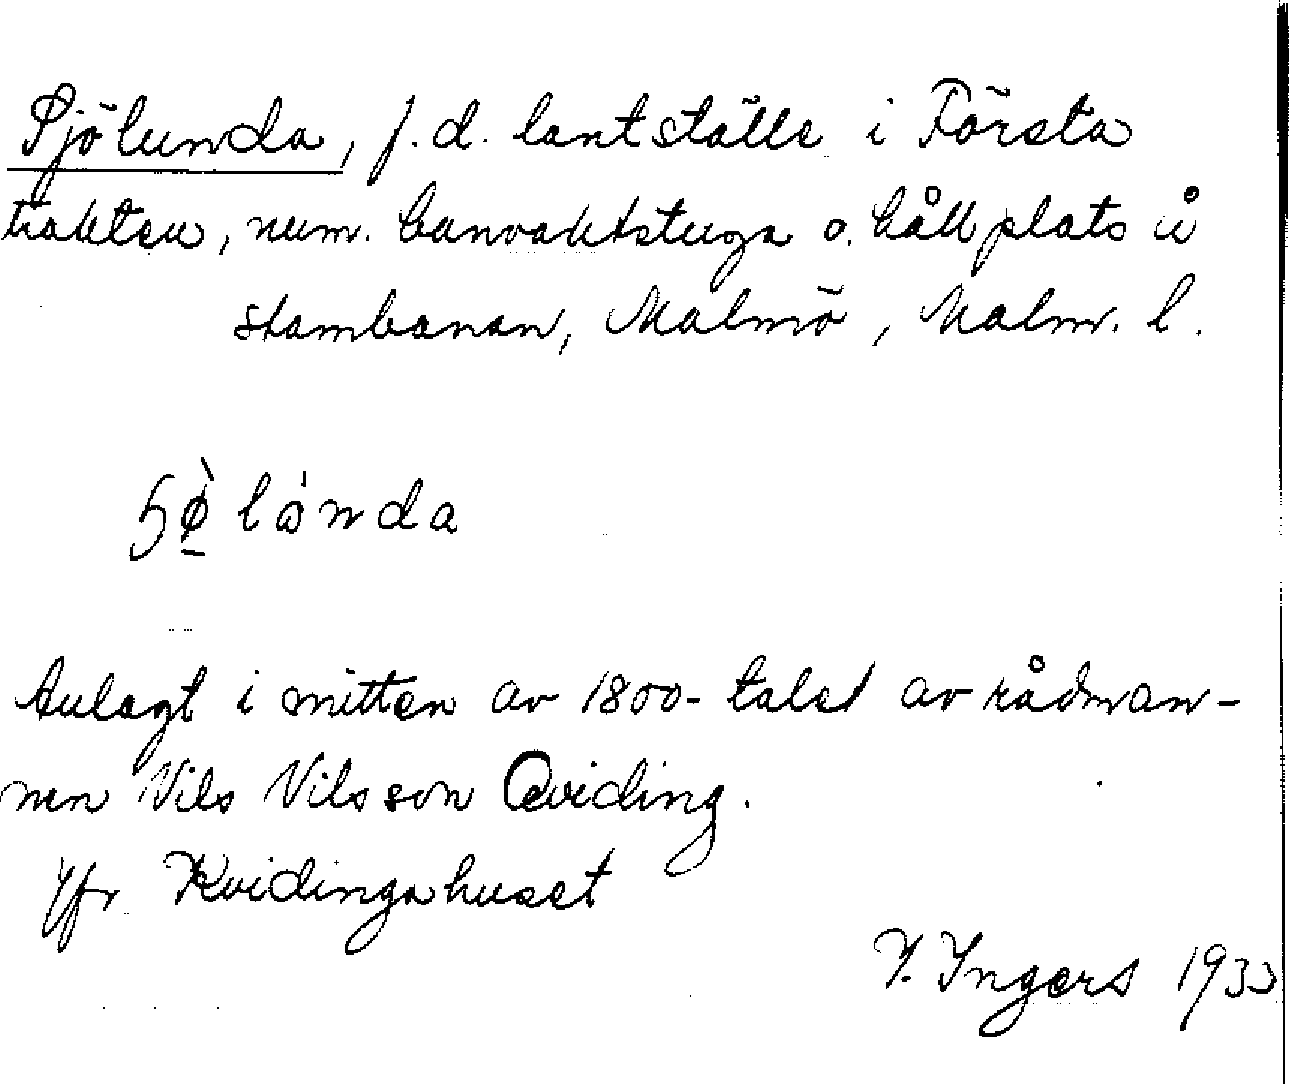 Sjölunda, f.d. lantställe i Första
trakten, num. banvaktstuga o. hållplats å
stambanan, Malmö, Malm. l.
Anlagt i mitten av 1800-talet av rådman-
nen Nils Nilsson Qviding.
Jfr Kvidingahuset
I. Ingers